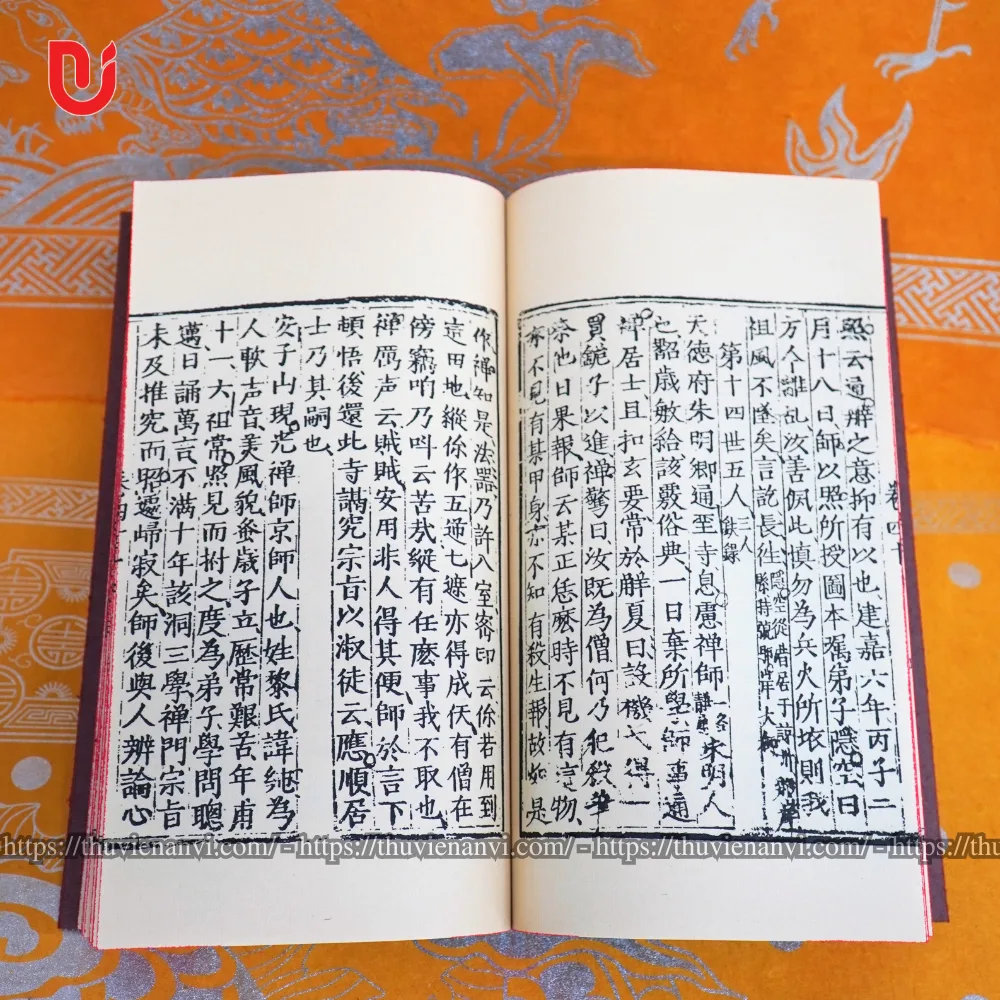 照云通辨之意抑有以也建嘉六年丙子二
月十八日師以照所授圖本属弟子隱空曰
方今離乱汝善佩此慎勿為兵火所坎則我
祖風不墜矣言訖長徃
第十四世五人 三人 録
天德府朱明鄉通至寺息慮禅師 朱明人
也韶歳敏給該覈俗典一日棄所學師事通
禅居士且扣玄要常於觧夏曰設機得一
冐以進禅驚曰汝既為僧何乃犯殺
柰他日果報師云某正恁麽時不見有物
亦不見有某甲身亦不知有殺生報故如是
作禅知是法器乃許入室密印云你若用到
這田地縱你作五通七遮亦得成仸有僧在
傍竊咱乃呌云苦㢤縱有任麽事我不取也
禅厲声云賊賊安用非人得其便師於言下
頓悟後還此寺講究宗旨以淑徒云應順居
士乃其嗣也
安子山現光禅師京師人也姓黎氏諱純為
人軟声音美風貌蚤歳子立歴常艱苦年甫
十一大祖常照見而拊之度為弟子學問聰
邁日誦萬言不满十年該洞三學禅門宗旨
未及推究而照遷歸寂矣師後與人辨論心
https://thuvienanvi.com/ - https://thuvienanvi.com/ - https://thuvienanvi.com/ - https://thu